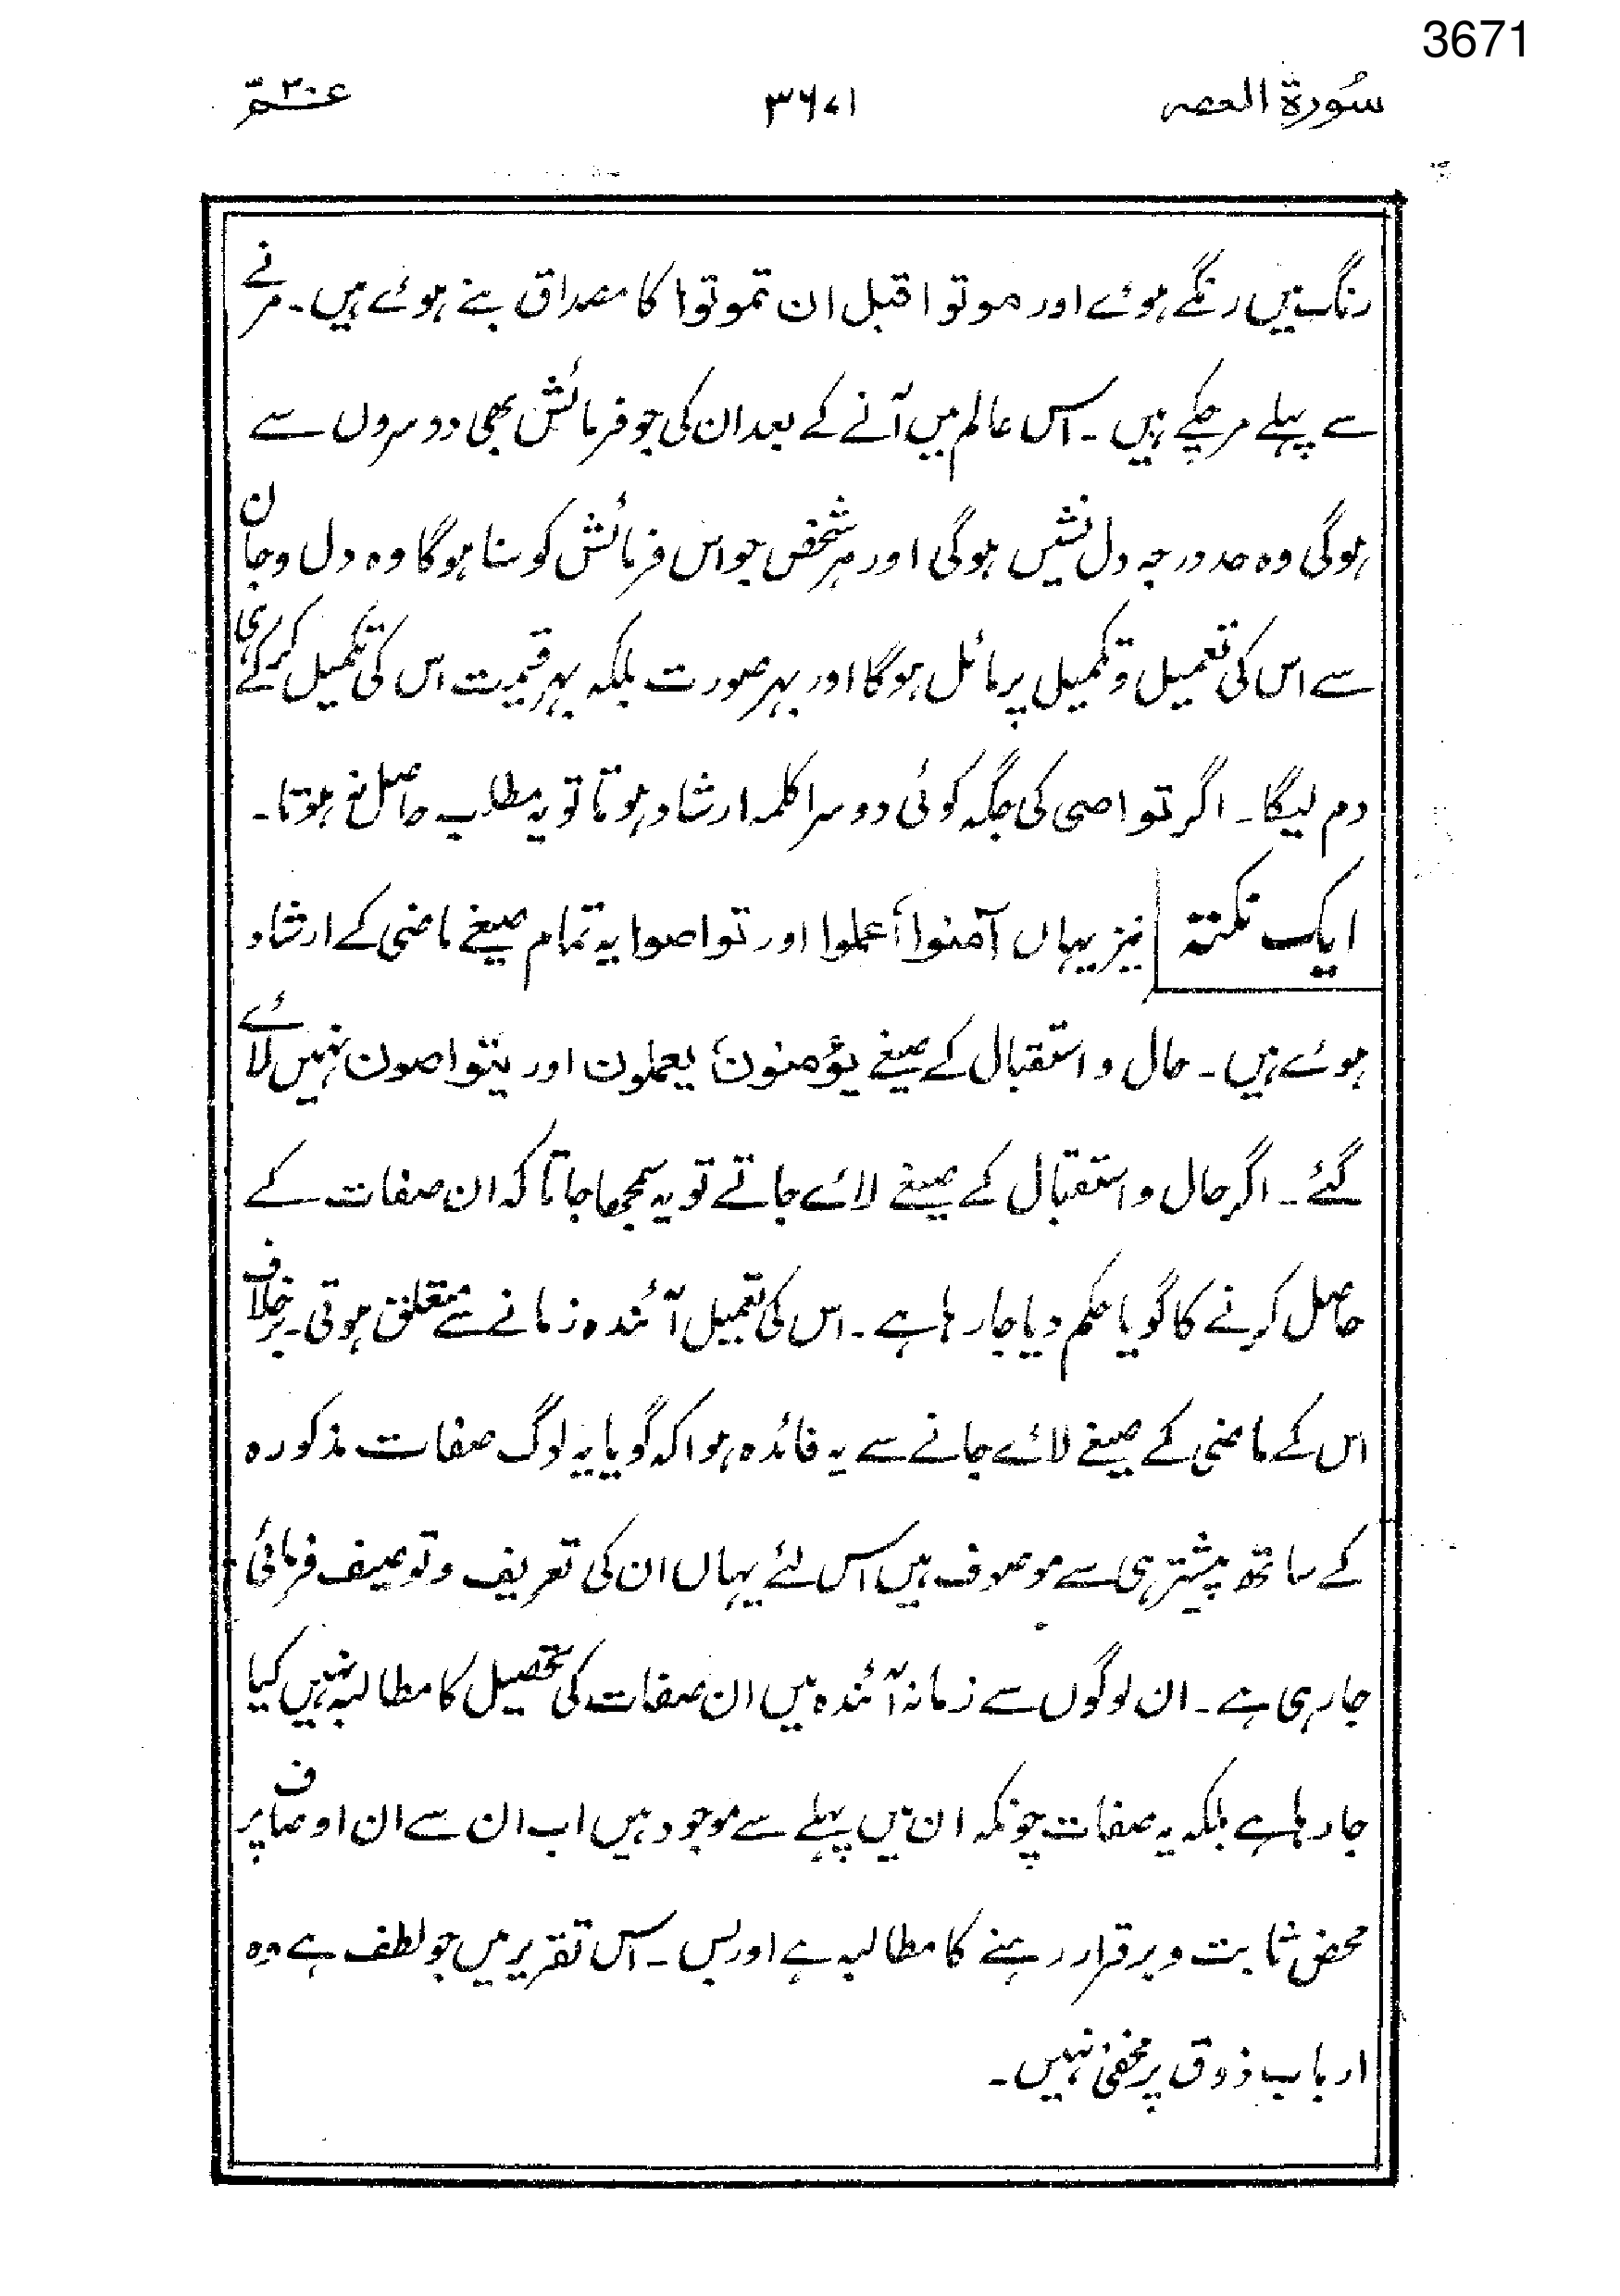 3671
سُورۃ العصر ۳۶۷۱ عمّ ۳۰
رنگ میں رنگے ہوئے اور موتوا قبل ان تموتوا کا مصداق بنے ہوئے ہیں۔ مرنے
سے پہلے مر چکے ہیں۔ اس عالم میں آنے کے بعد ان کی جو فرمائش بھی دوسروں سے
ہوگی وہ حد درجہ دل نشیں ہوگی اور ہر شخص جو اس فرمائش کو سنا ہوگا وہ دل و جان
سے اس کی تعمیل و تکمیل پر مائل ہوگا اور بہر صورت بلکہ بہر قیمت اس کی تکمیل کر کے ہی
دم لیگا۔ اگر تواصی کی جگہ کوئی دوسرا کلمہ ارشاد ہوتا تو یہ مطلب حاصل نہ ہوتا۔
ایک نکتہ نیز یہاں آمنوا، عملوا اور تواصوا یہ تمام صیغے ماضی کے ارشاد
ہوئے ہیں۔ حال و استقبال کے صیغے یؤمنون، یعملون اور یتواصون نہیں لائے
گئے۔ اگر حال و استقبال کے صیغے لائے جاتے تو یہ سمجھا جاتا کہ ان صفات کے
حاصل کرنے کا گویا حکم دیا جا رہا ہے۔ اس کی تعمیل آئندہ زمانے سے متعلق ہوتی۔ برخلاف
اس کے ماضی کے صیغے لائے جانے سے یہ فائدہ ہوا کہ گویا یہ لوگ صفات مذکورہ
کے ساتھ پیشتر ہی سے موصوف ہیں اس لئے یہاں ان کی تعریف و توصیف فرمائی
جا رہی ہے۔ ان لوگوں سے زمانہ آئندہ میں ان صفات کی تحصیل کا مطالبہ نہیں کیا
جا رہا ہے بلکہ یہ صفات چونکہ ان میں پہلے سے موجود ہیں اب ان سے ان اوصاف پر
محض ثابت و برقرار رہنے کا مطالبہ ہے اور بس۔ اس تقریر میں جو لطف ہے وہ
ارباب ذوق پر مخفی نہیں۔